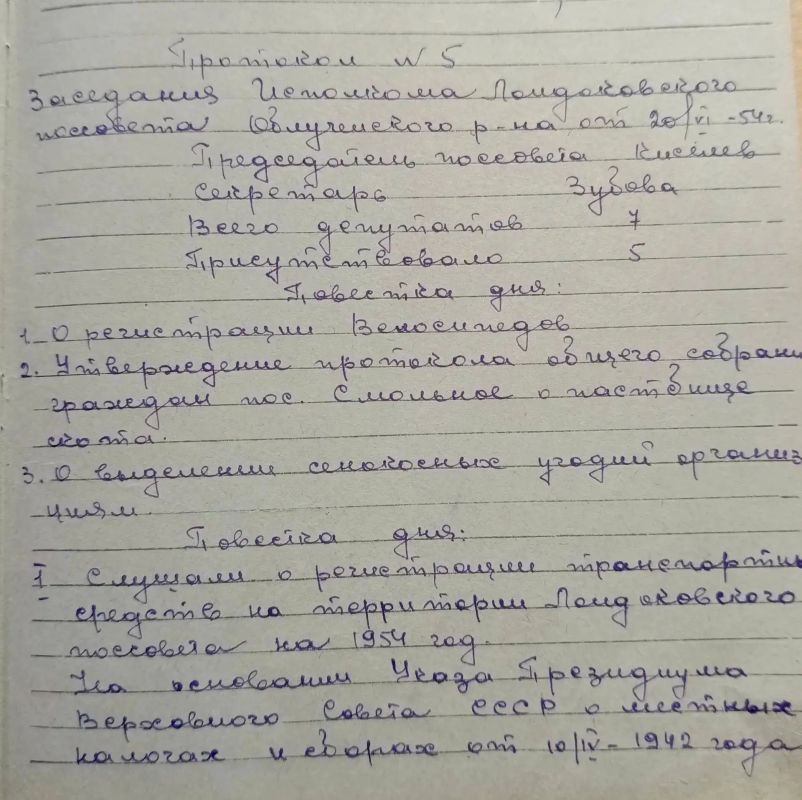 Протокол N 5
Заседания Исполкома Лондоковского
поссовета Облученского р-на от 20/VI -54г.
Председатель поссовета Киселев
Секретарь Зубова
Всего депутатов 7
Присутствовало 5
Повестка дня:
1. О регистрации Велосипедов
2. Утверждение протокола общего собрани
граждан пос. Смольное о пастбище
скота.
3. О выделении сенокосных угодий организ
циям.
Повестка дня:
I Слушали о регистрации транспортны
средств на территории Лондоковского
поссовета на 1954 год.
На основании Указа Президиума
Верховного Совета СССР о местных
налогах и сборах от 10/IV - 1942 года